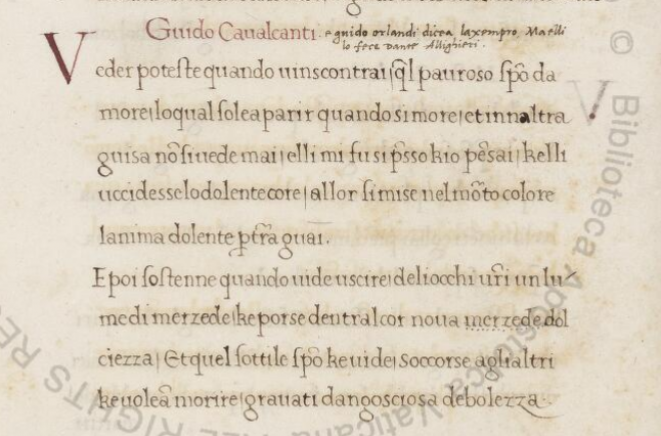 Guido Caualcanti. e guido orlandi dicea laxempro, Ma elli
lo fece Dante Allighieri.
Veder poteste quando uinscontrai | ql pauroso spõ da
more | loqual solea parir quando si more | et in naltra
guisa nõ si uede mai | elli mi fu si psso kio pẽsai | kelli
uccidesse lo dolente core | allor si mise nel mõto colore
lanima dolente ꝑ tr̃a guai.
E poi sostenne quando uide uscire | deli occhi ur̃i un lu
me di merzede | ke porse dentral cor noua merzede dol
ciezza | Et quel sottile spõ ke uide | soccorse agli altri
ke uoleã morire | grauati dangosciosa debolezza
V
© Biblioteca Apostolica Vaticana
ALL RIGHTS RES